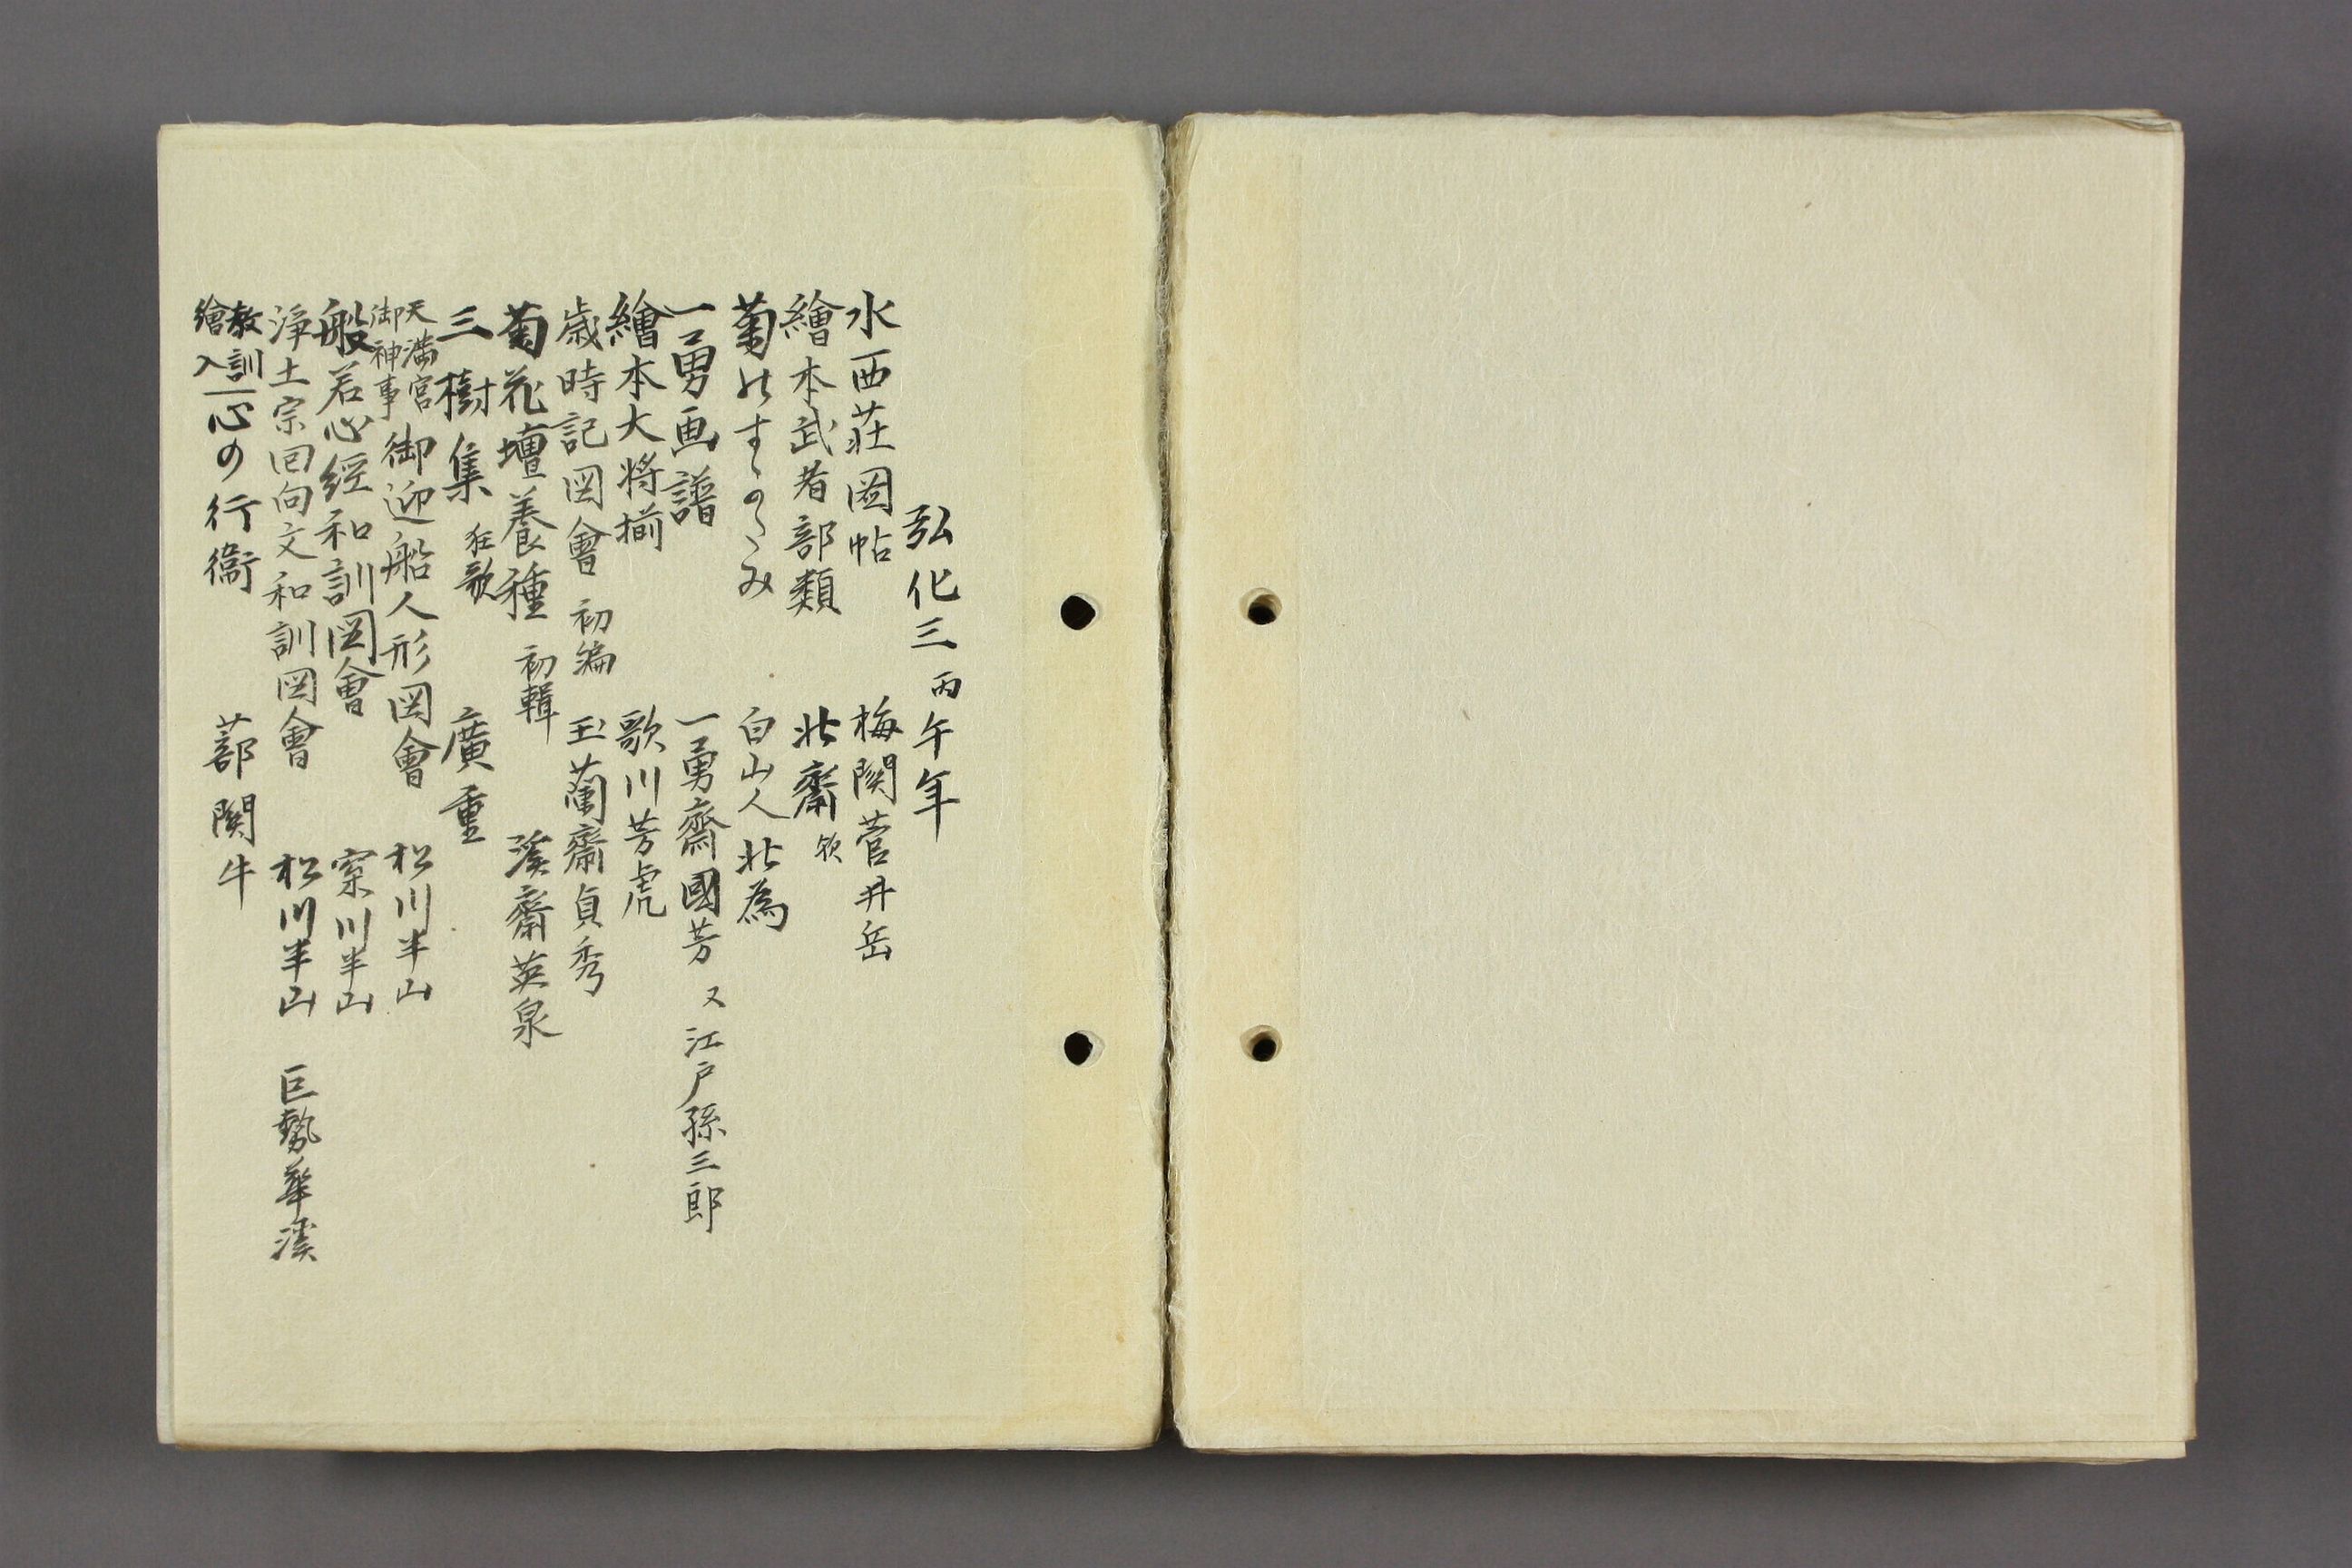 弘化三丙午年
水西荘図帖　梅関菅井岳
繪本武者部類　北齋 欤
菊のすゝのゝみ　白山人北為
一勇画譜　一勇齋國芳　又江戸孫三郎
繪本大将揃　歌川芳虎
歳時記図會 初編　玉蘭齋貞秀
菊花壇養種 初輯　溪齋英泉
三樹集 狂歌　廣重
天満宮御神事 御迎船人形図會　松川半山
般若心經和訓図會　案川半山
浄土宗回向文和訓図會　松川半山　巨勢華溪
教訓繪入 心の行衞　蔀関牛